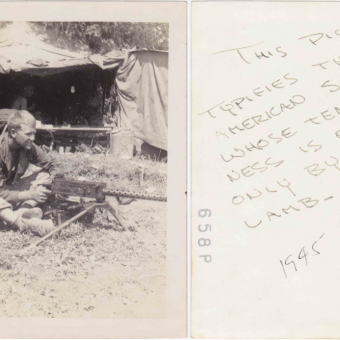 THIS PIC
TYPIFIES TH
AMERICAN S
WHOSE TEN
NESS IS E
ONLY BY
LAMB-
1945
658P